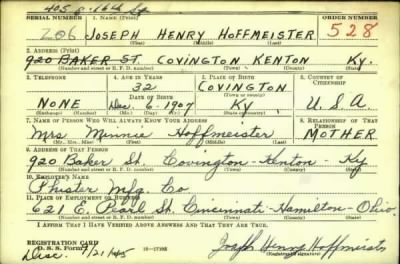 405 E. 16th St
SERIAL NUMBER 1. NAME (Print) ORDER NUMBER
206 JOSEPH HENRY HOFFMEISTER 528
(First) (Middle) (Last)
2. ADDRESS (Print)
920 BAKER ST. COVINGTON KENTON KY.
(Number and street or R. F. D. number) (Town) (County) (State)
3. TELEPHONE 4. AGE IN YEARS 5. PLACE OF BIRTH 6. COUNTRY OF CITIZENSHIP
32 COVINGTON
DATE OF BIRTH (Town or county)
NONE Dec. 6 - 1907 KY U.S.A.
(Exchange) (Number) (Mo.) (Day) (Yr.) (State or country)
7. NAME OF PERSON WHO WILL ALWAYS KNOW YOUR ADDRESS 8. RELATIONSHIP OF THAT PERSON
Mrs Minnie Hoffmeister MOTHER
(Mr., Mrs., Miss) (First) (Middle) (Last)
9. ADDRESS OF THAT PERSON
920 Baker St. Covington - Kenton - Ky
(Number and street or R. F. D. number) (Town) (County) (State)
10. EMPLOYER'S NAME
Phister Mfg. Co
11. PLACE OF EMPLOYMENT OR BUSINESS
621 E. Pearl St. Cincinnati - Hamilton - Ohio.
(Number and street or R. F. D. number) (Town) (County) (State)
I AFFIRM THAT I HAVE VERIFIED ABOVE ANSWERS AND THAT THEY ARE TRUE.
REGISTRATION CARD
D. S. S. Form 1 16-17105 Joseph Henry Hoffmeister
Disc. 9/21/45 (Registrant's signature)